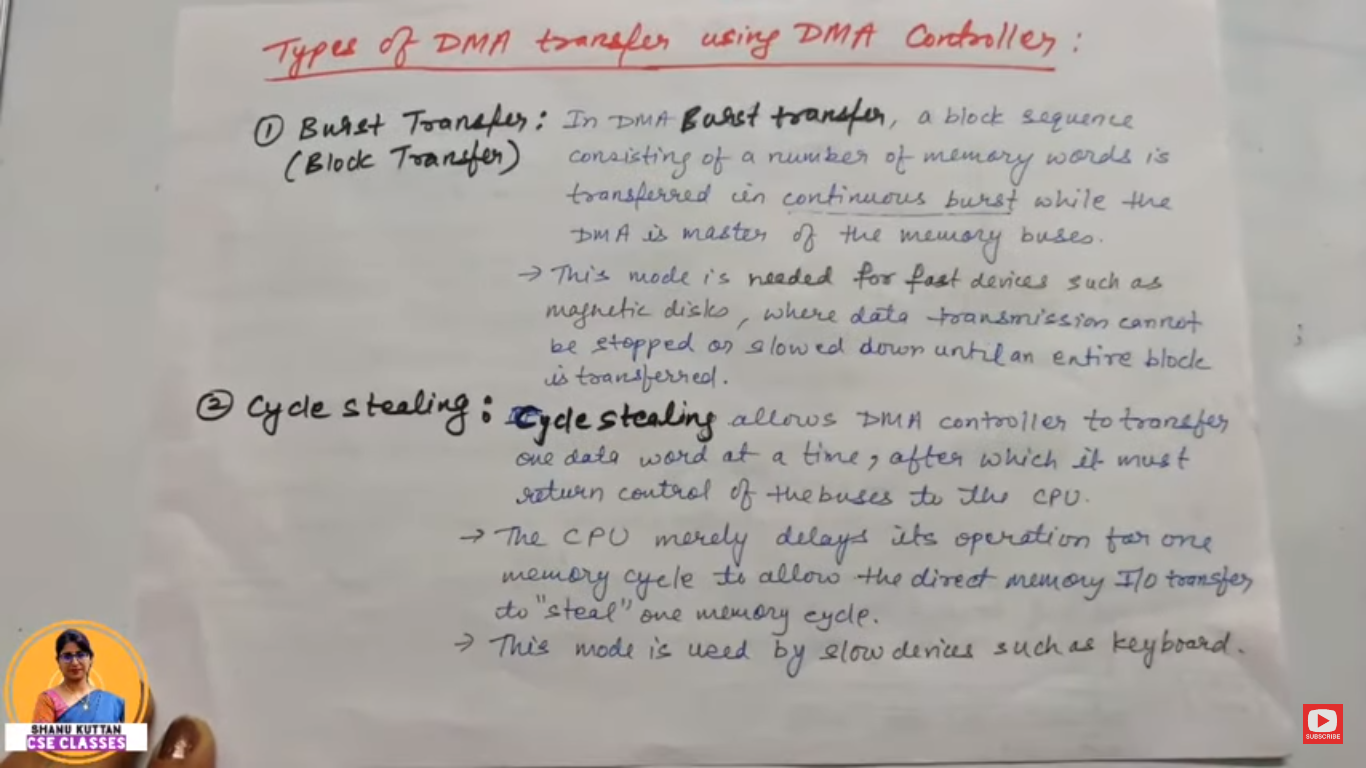 Types of DMA transfer using DMA Controller :
① Burst Transfer : In DMA Burst transfer, a block sequence
(Block Transfer) consisting of a number of memory words is
transferred in continuous burst while the
DMA is master of the memory buses.
→ This mode is needed for fast devices such as
magnetic disks, where data transmission cannot
be stopped or slowed down until an entire block
is transferred.
② Cycle stealing : Cycle stealing allows DMA controller to transfer
one data word at a time, after which it must
return control of the buses to the CPU.
→ The CPU merely delays its operation for one
memory cycle to allow the direct memory I/O transfer
to "steal" one memory cycle.
→ This mode is used by slow devices such as keyboard.
SHANU KUTTAN
CSE CLASSES
SUBSCRIBE